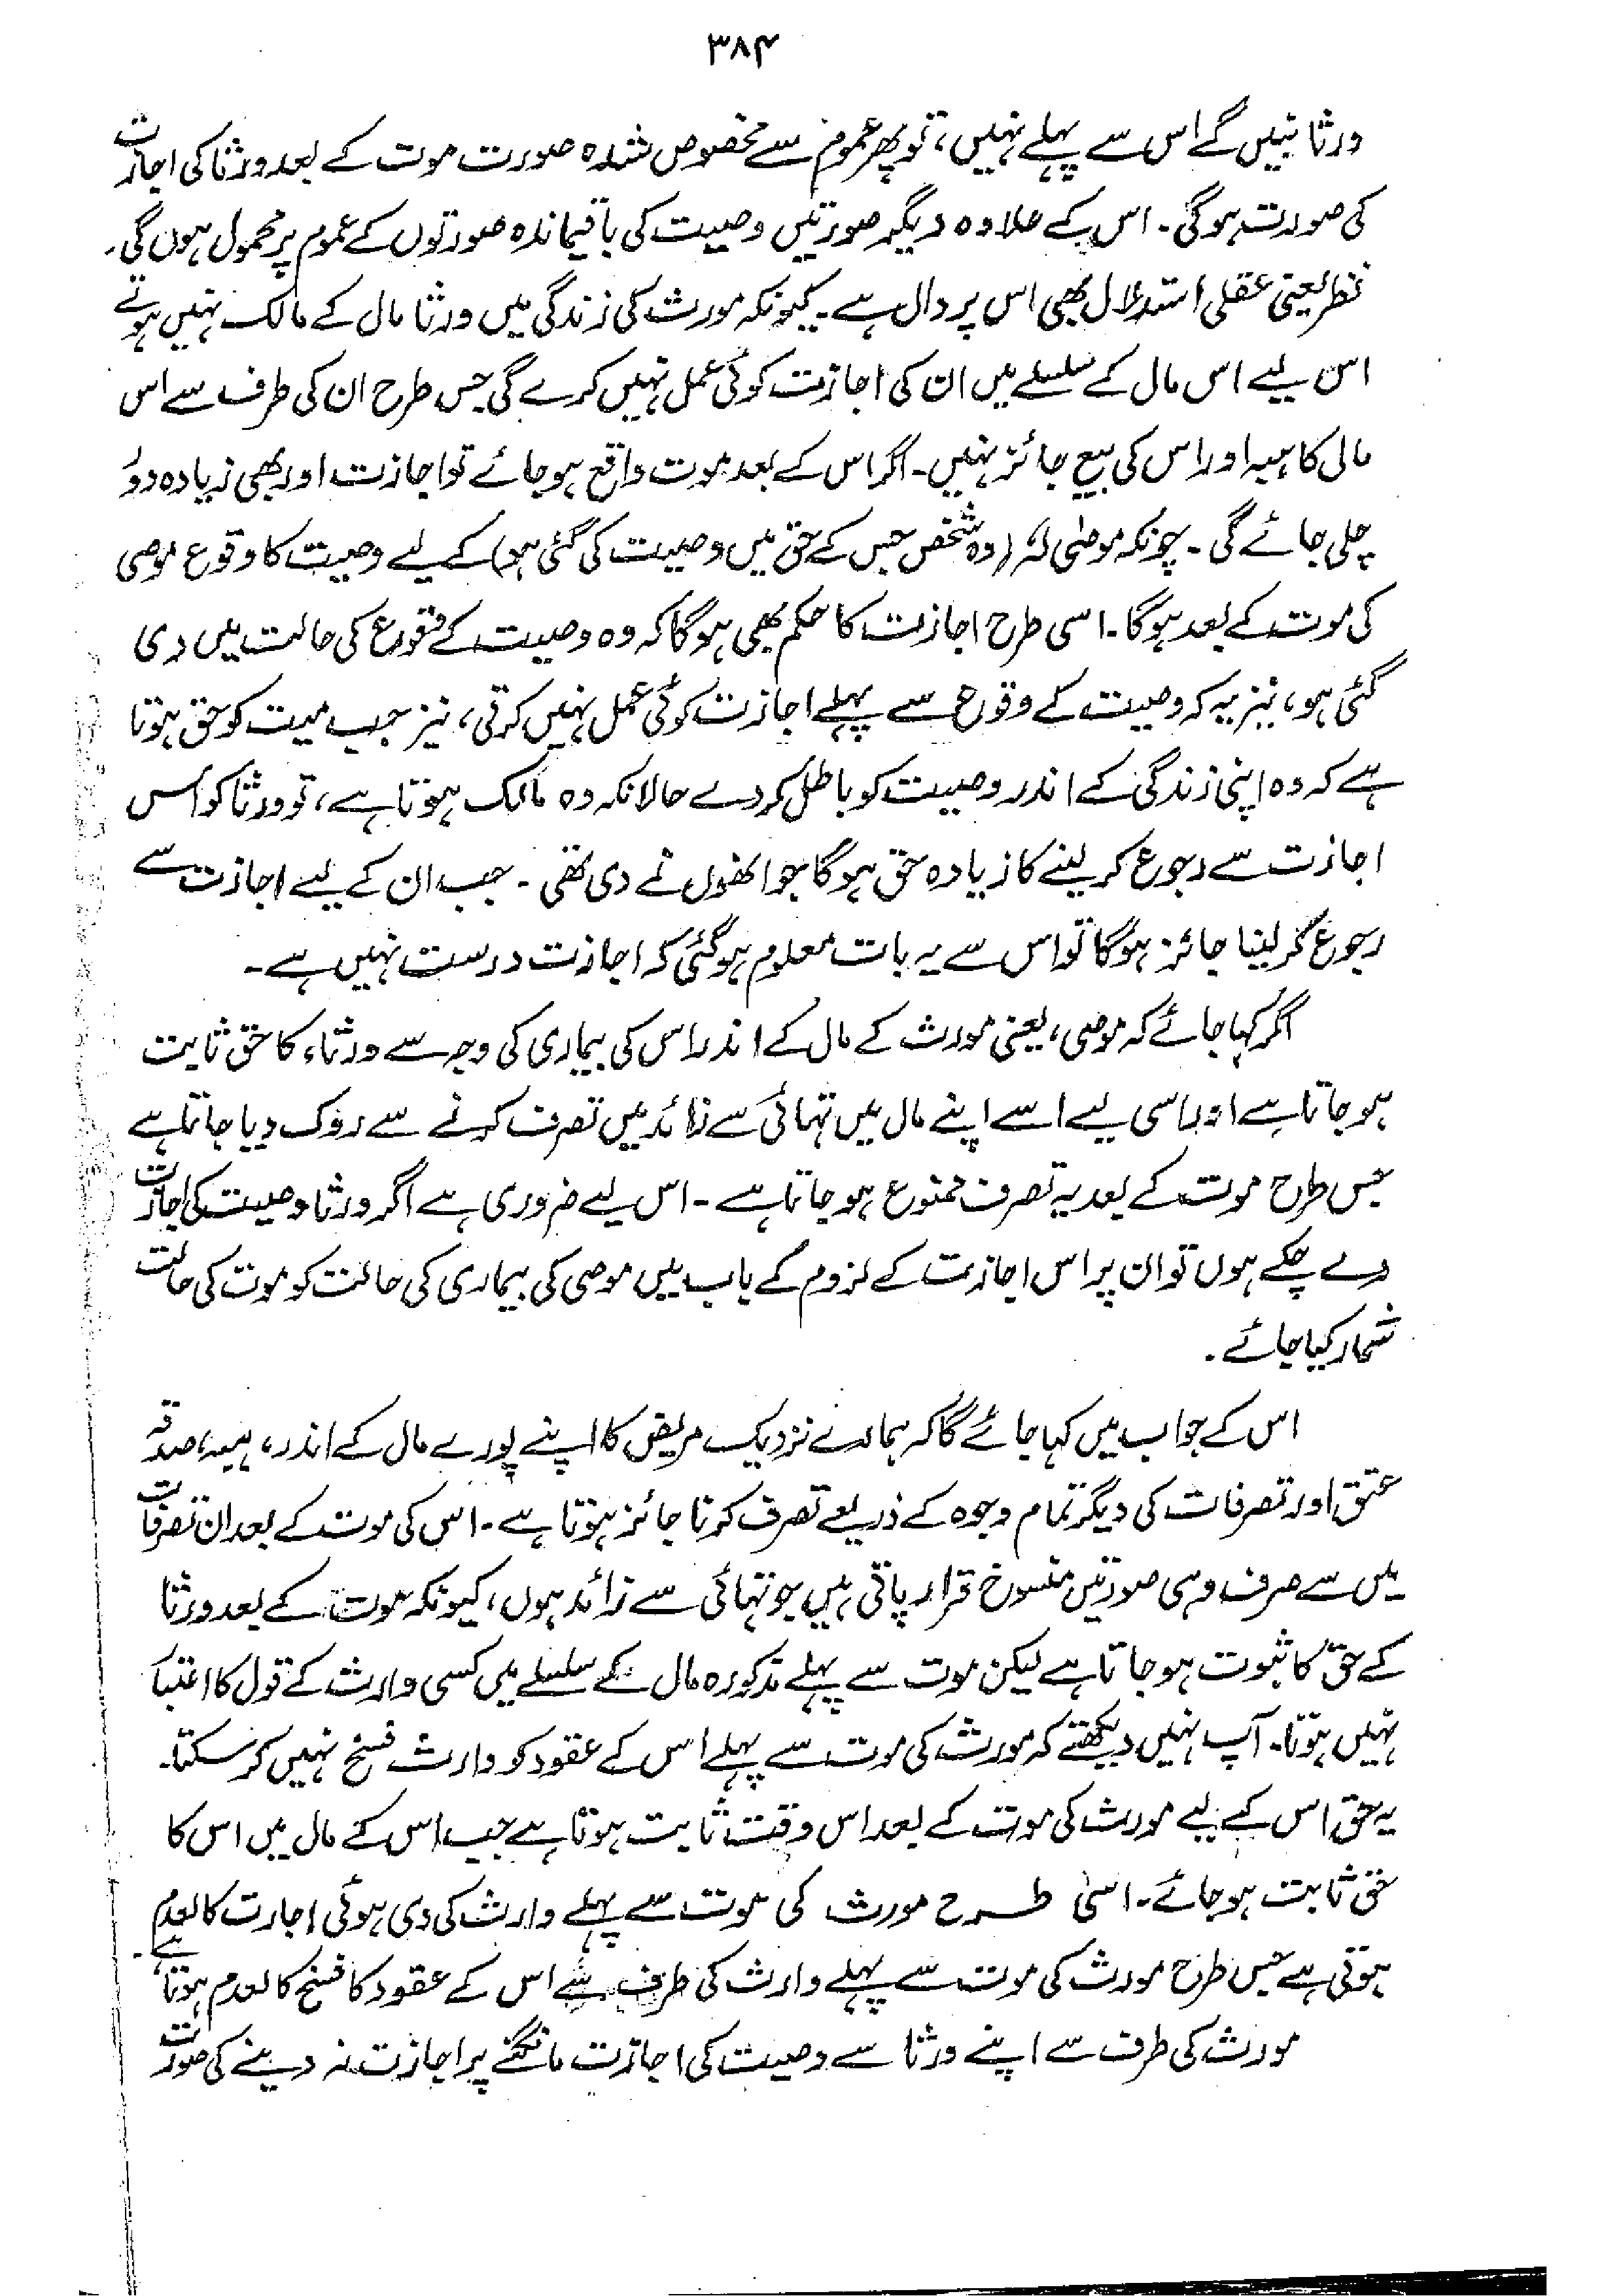 ۳۸۴
ورثا بنیں گے اس سے پہلے نہیں، تو پھر عموم سے مخصوص شدہ صورت موت کے بعد ورثا کی اجازت
کی صورت ہوگی۔ اس کے علاوہ دیگر صورتیں وصیت کی باقیماندہ صورتوں کے عموم پر محمول ہوں گی۔
نظر یعنی عقلی استدلال بھی اس پر دال ہے۔ کیونکہ مورث کی زندگی میں ورثا مال کے مالک نہیں ہوتے
اس لیے اس مال کے سلسلے میں ان کی اجازت کوئی عمل نہیں کرے گی جس طرح ان کی طرف سے اس
مال کا ہبہ اور اس کی بیع جائز نہیں۔ اگر اس کے بعد موت واقع ہو جائے تو اجازت اور بھی زیادہ دور
چلی جائے گی۔ چونکہ موصٰی لہٗ (وہ شخص جس کے حق میں وصیت کی گئی ہو) کے لیے وصیت کا وقوع موصی
کی موت کے بعد ہوگا۔ اسی طرح اجازت کا حکم بھی ہوگا کہ وہ وصیت کے وقوع کی حالت میں دی
گئی ہو، نیز یہ کہ وصیت کے وقوع سے پہلے اجازت کوئی عمل نہیں کرتی، نیز جب میت کو حق ہوتا
ہے کہ وہ اپنی زندگی کے اندر وصیت کو باطل کردے حالانکہ وہ مالک ہوتا ہے، تو ورثا کو اُس
اجازت سے رجوع کر لینے کا زیادہ حق ہوگا جو انھوں نے دی تھی۔ جب ان کے لیے اجازت سے
رجوع کر لینا جائز ہوگا تو اس سے یہ بات معلوم ہوگئی کہ اجازت درست نہیں ہے۔
اگر کہا جائے کہ موصی، یعنی مورث کے مال کے اندر اس کی بیماری کی وجہ سے ورثاء کا حق ثابت
ہو جاتا ہے اور اسی لیے اسے اپنے مال میں تہائی سے زائد میں تصرف کرنے سے روک دیا جاتا ہے
جس طرح موت کے بعد یہ تصرف ممنوع ہو جاتا ہے۔ اس لیے ضروری ہے اگر ورثا وصیت کی اجازت
دے چکے ہوں تو ان پر اس اجازت کے لزوم کے باب میں موصی کی بیماری کی حالت کو موت کی حالت
شمار کیا جائے۔
اس کے جواب میں کہا جائے گا کہ ہمارے نزدیک مریض کا اپنے پورے مال کے اندر، ہبہ، صدقہ
عتق اور تصرفات کی دیگر تمام وجوہ کے ذریعے تصرف کرنا جائز ہوتا ہے۔ اس کی موت کے بعد ان تصرفات
میں سے صرف وہی صورتیں منسوخ قرار پاتی ہیں جو تہائی سے زائد ہوں، کیونکہ موت کے بعد ورثا
کے حق کا ثبوت ہو جاتا ہے لیکن موت سے پہلے مذکورہ مال کے سلسلے میں کسی وارث کے قول کا اعتبار
نہیں ہوتا۔ آپ نہیں دیکھتے کہ مورث کی موت سے پہلے اس کے عقود کو وارث فسخ نہیں کر سکتا۔
یہ حق اس کے لیے مورث کی موت کے بعد اس وقت ثابت ہوتا ہے جب اس کے مال میں اس کا
حق ثابت ہو جائے۔ اسی طرح مورث کی موت سے پہلے وارث کی دی ہوئی اجازت کالعدم
ہوتی ہے جس طرح مورث کی موت سے پہلے وارث کی طرف سے اس کے عقود کا فسخ کالعدم ہوتا ہے۔
مورث کی طرف سے اپنے ورثا سے وصیت کی اجازت مانگنے پر اجازت نہ دینے کی صورت